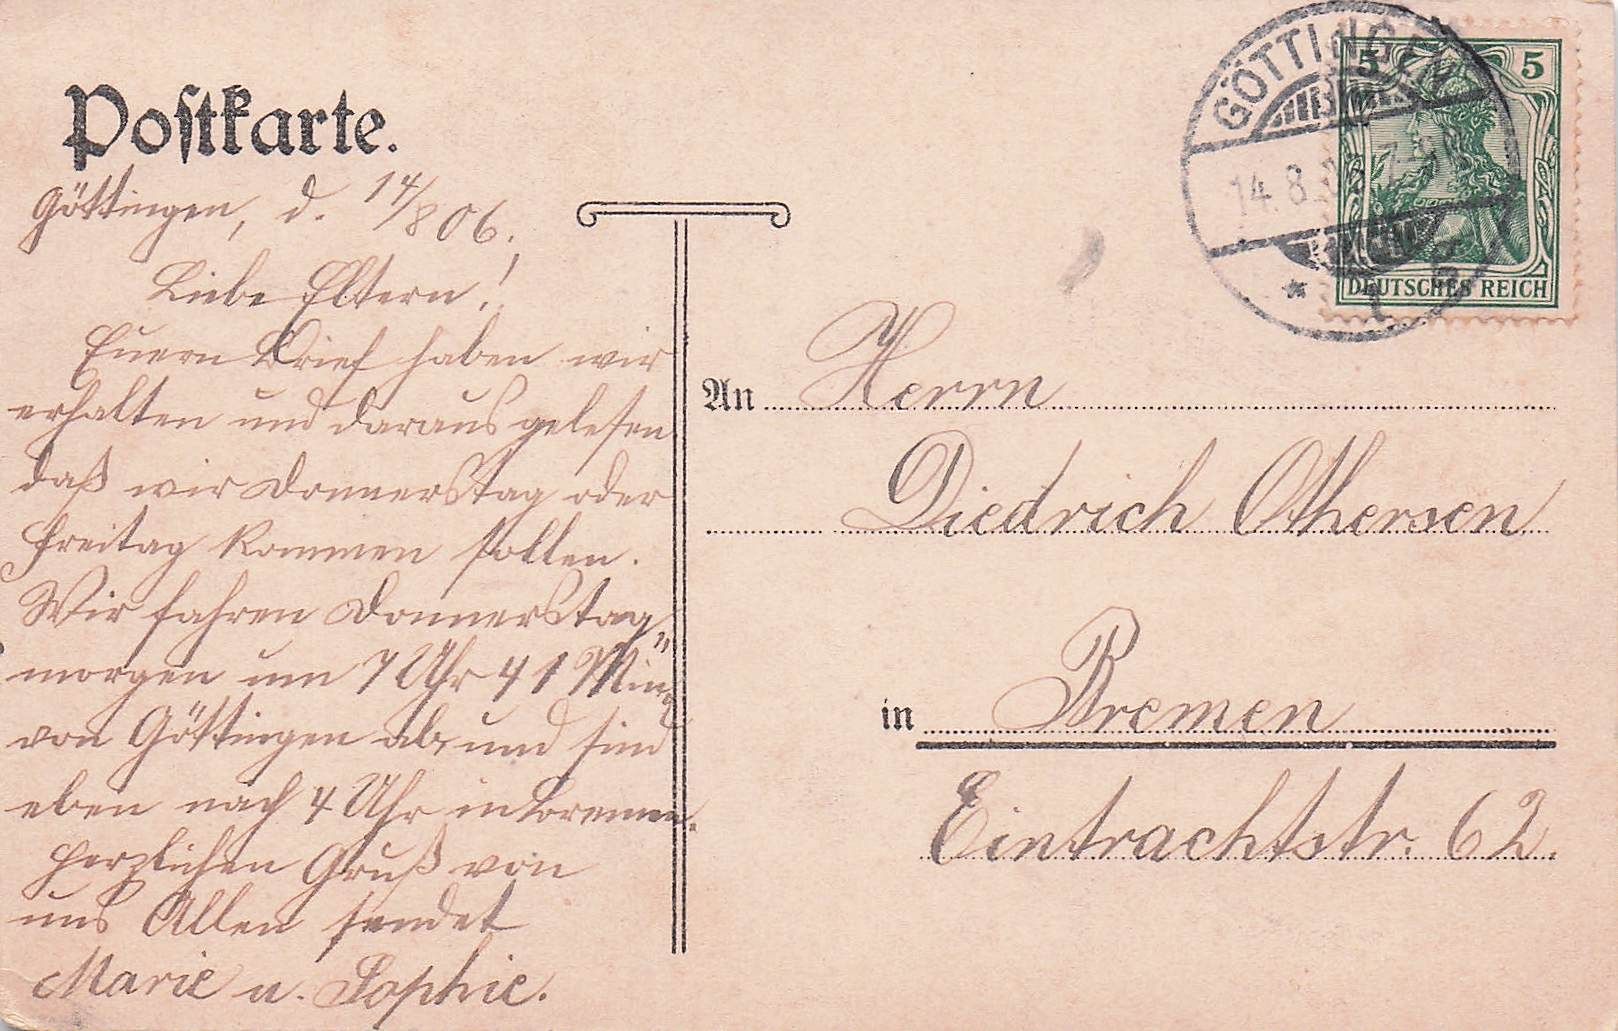 Postkarte.
Göttingen, d. 14/8 06.
Liebe Eltern!
Euern Brief haben wir
erhalten und daraus gelesen
daß wir Donnerstag oder
Freitag kommen sollen.
Wir fahren Donnerstag
morgen um 7 Uhr 41 Min
von Göttingen ab, und sind
eben nach 4 Uhr in Bremen.
Herzlichen Gruß von
uns Allen sendet
Marie u. Sophie.
GÖTTINGEN
14.8.
* 1
5 5
DEUTSCHES REICH
An Herrn
Diedrich Othersen
in Bremen
Eintrachtstr. 62.